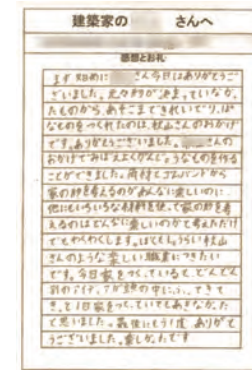 建築家の さんへ
感想とお礼
まず始めに さん今日はありがとうご
ざいました。元々形が決まっていなか
たものから、あそこまできれいでりっぱ
なものをつくれたのは、杉山さんのおかげ
です。ありがとうございました。 さんの
おかげでみばえよくがんじょうなものを作る
ことができました。角材とゴムバンドから
家の形を考えるのがあんなに楽しいのに
他にもいろいろな材料を使って家の形を考
えるのはどんなに楽しいのかと考えただけ
でもわくわくします。ぼくもしょうらい杉山
さんのような楽しい職業につきたい
です。今日家をつくっていると、どんどん
別のアイディアが頭の中にうかんできて
きっと1日家をつくっていてもあきなかった
と思いました。最後にもう1度 ありがと
うございました。楽しかったです